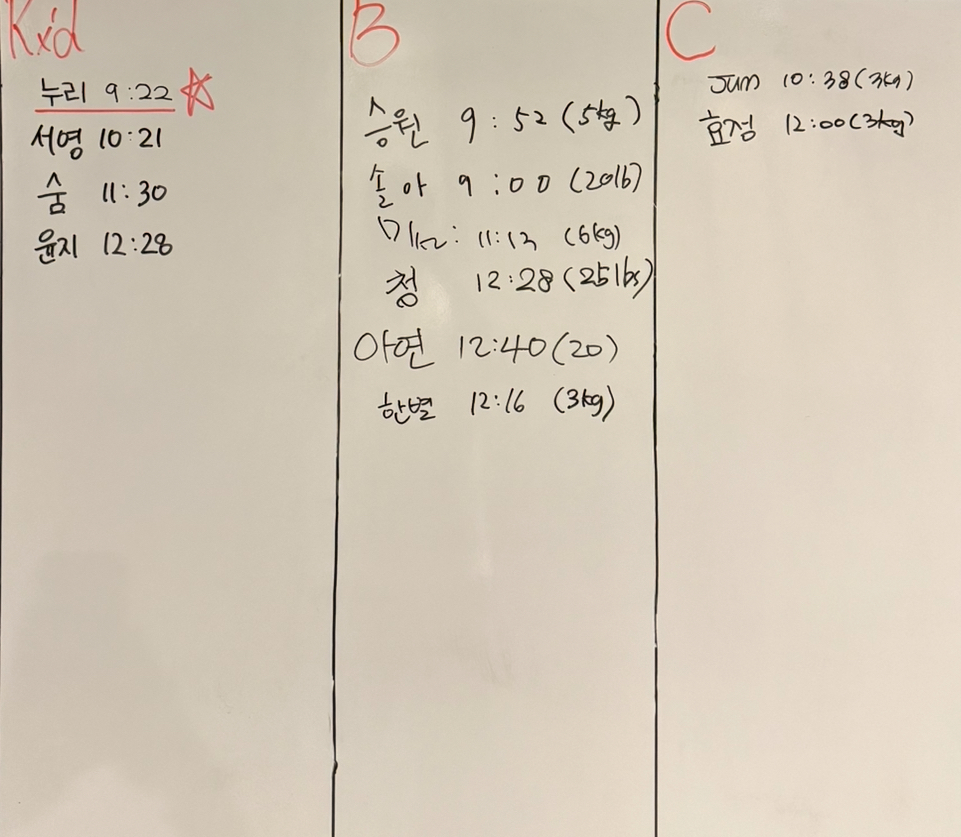 Kid
누리 9:22
서영 10:21
숨 11:30
윤지 12:28
B
승원 9:52 (5kg)
솔아 9:00 (20lb)
11:13 (6kg)
청 12:28 (25lbs)
아연 12:40 (20)
한별 12:16 (3kg)
C
Jum 10:38 (3kg)
효정 12:00 (3kg)